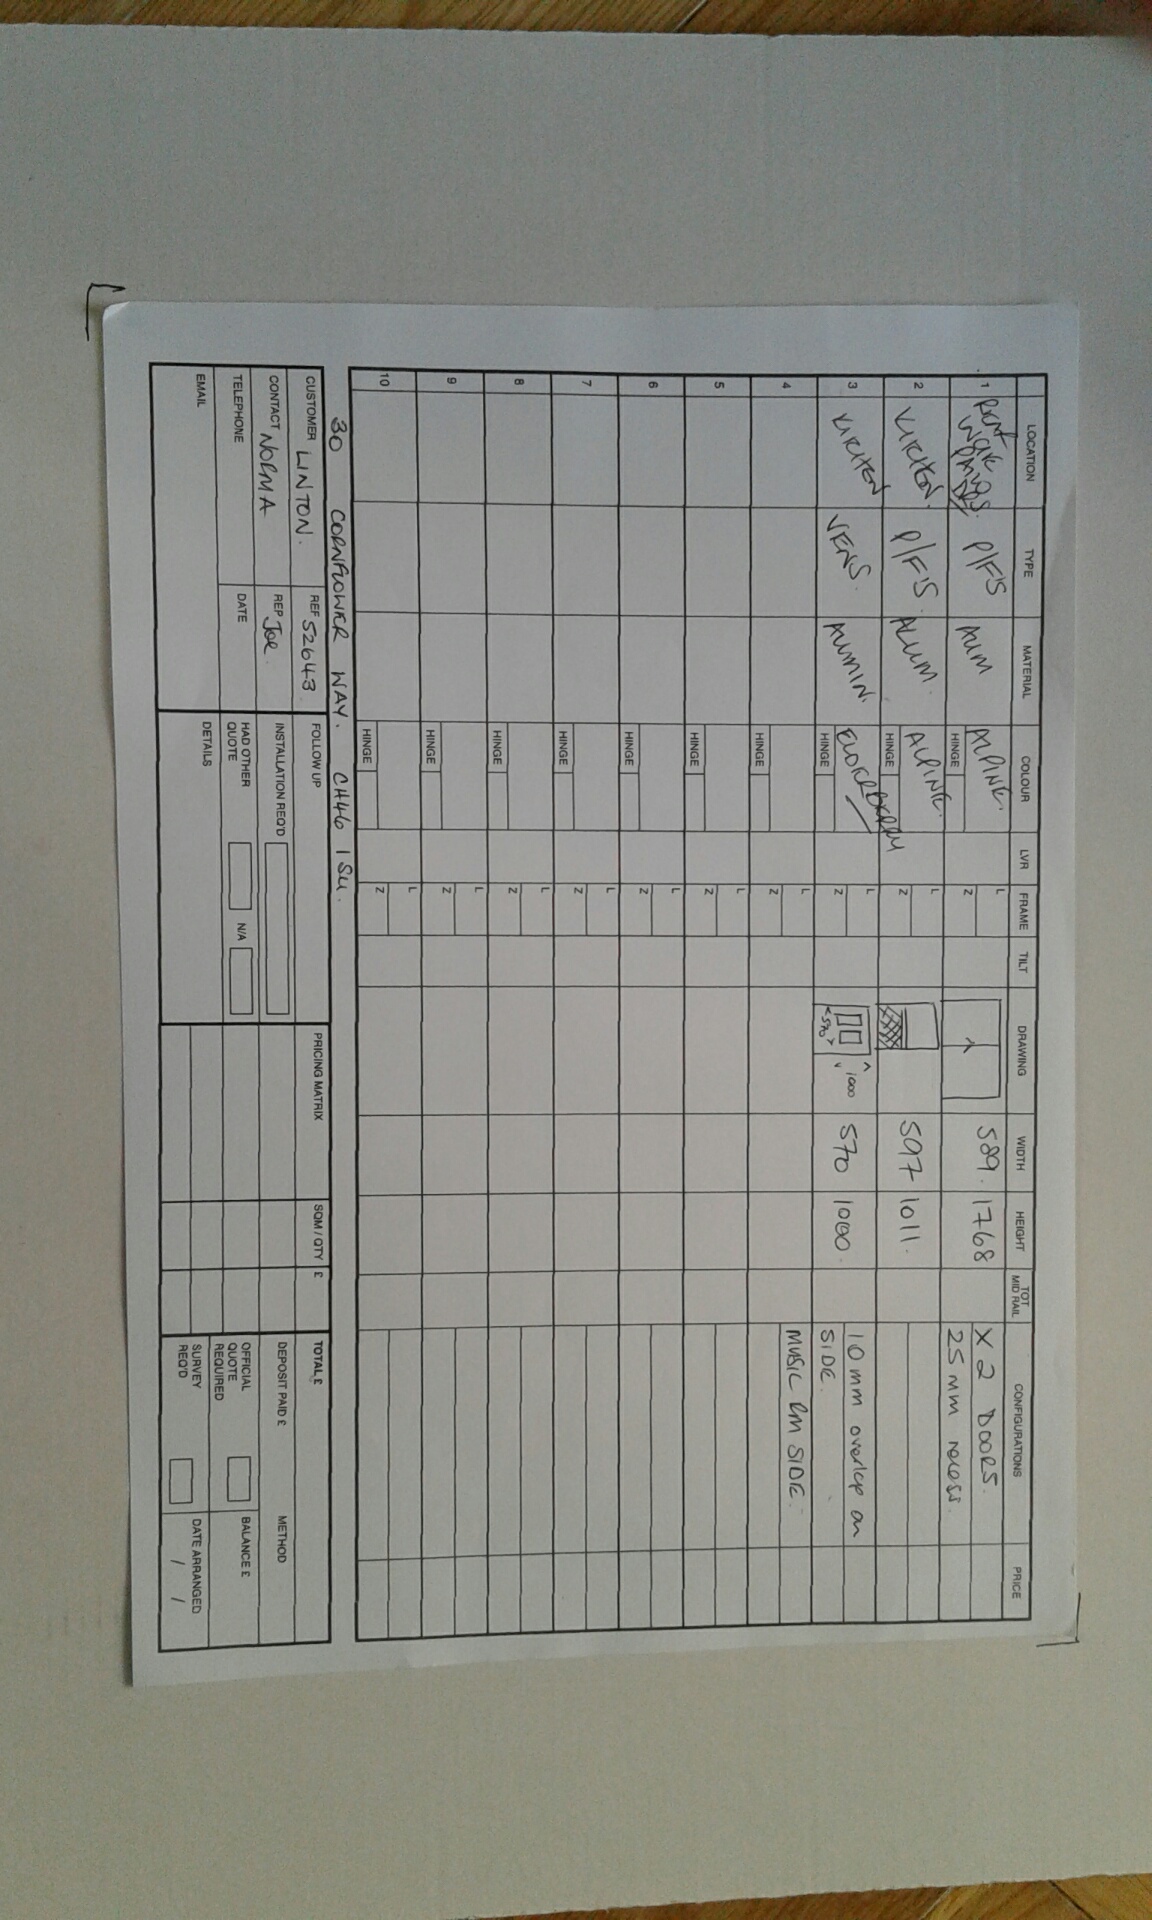 LOCATION TYPE MATERIAL COLOUR LVR FRAME TILT DRAWING WIDTH HEIGHT TOT MID RAIL CONFIGURATIONS PRICE
1 P/F'S ALUM ALPINE. HINGE L Z 589. 1768 X 2 DOORS.
25mm recess.
2 KITCHEN. P/F'S. ALUM. ALPINE. HINGE L Z 597 1011.
3 KITCHEN VENS. ALUMIN. HINGE L Z <570> <1000> 570 1000. 10mm overlap on
SIDE.
4 HINGE L Z MUSIC RM SIDE.
5 HINGE L Z
6 HINGE L Z
7 HINGE L Z
8 HINGE L Z
9 HINGE L Z
10 HINGE L Z
30 CORNFLOWER WAY. CH46 1SU.
CUSTOMER LINTON. REF 52643
CONTACT NORMA REP Joe.
TELEPHONE DATE
EMAIL
FOLLOW UP
INSTALLATION REQ'D
HAD OTHER QUOTE N/A
DETAILS
PRICING MATRIX SQM / QTY £
TOTAL £
DEPOSIT PAID £ METHOD
OFFICIAL QUOTE REQUIRED BALANCE £
SURVEY REQ'D DATE ARRANGED
/ /